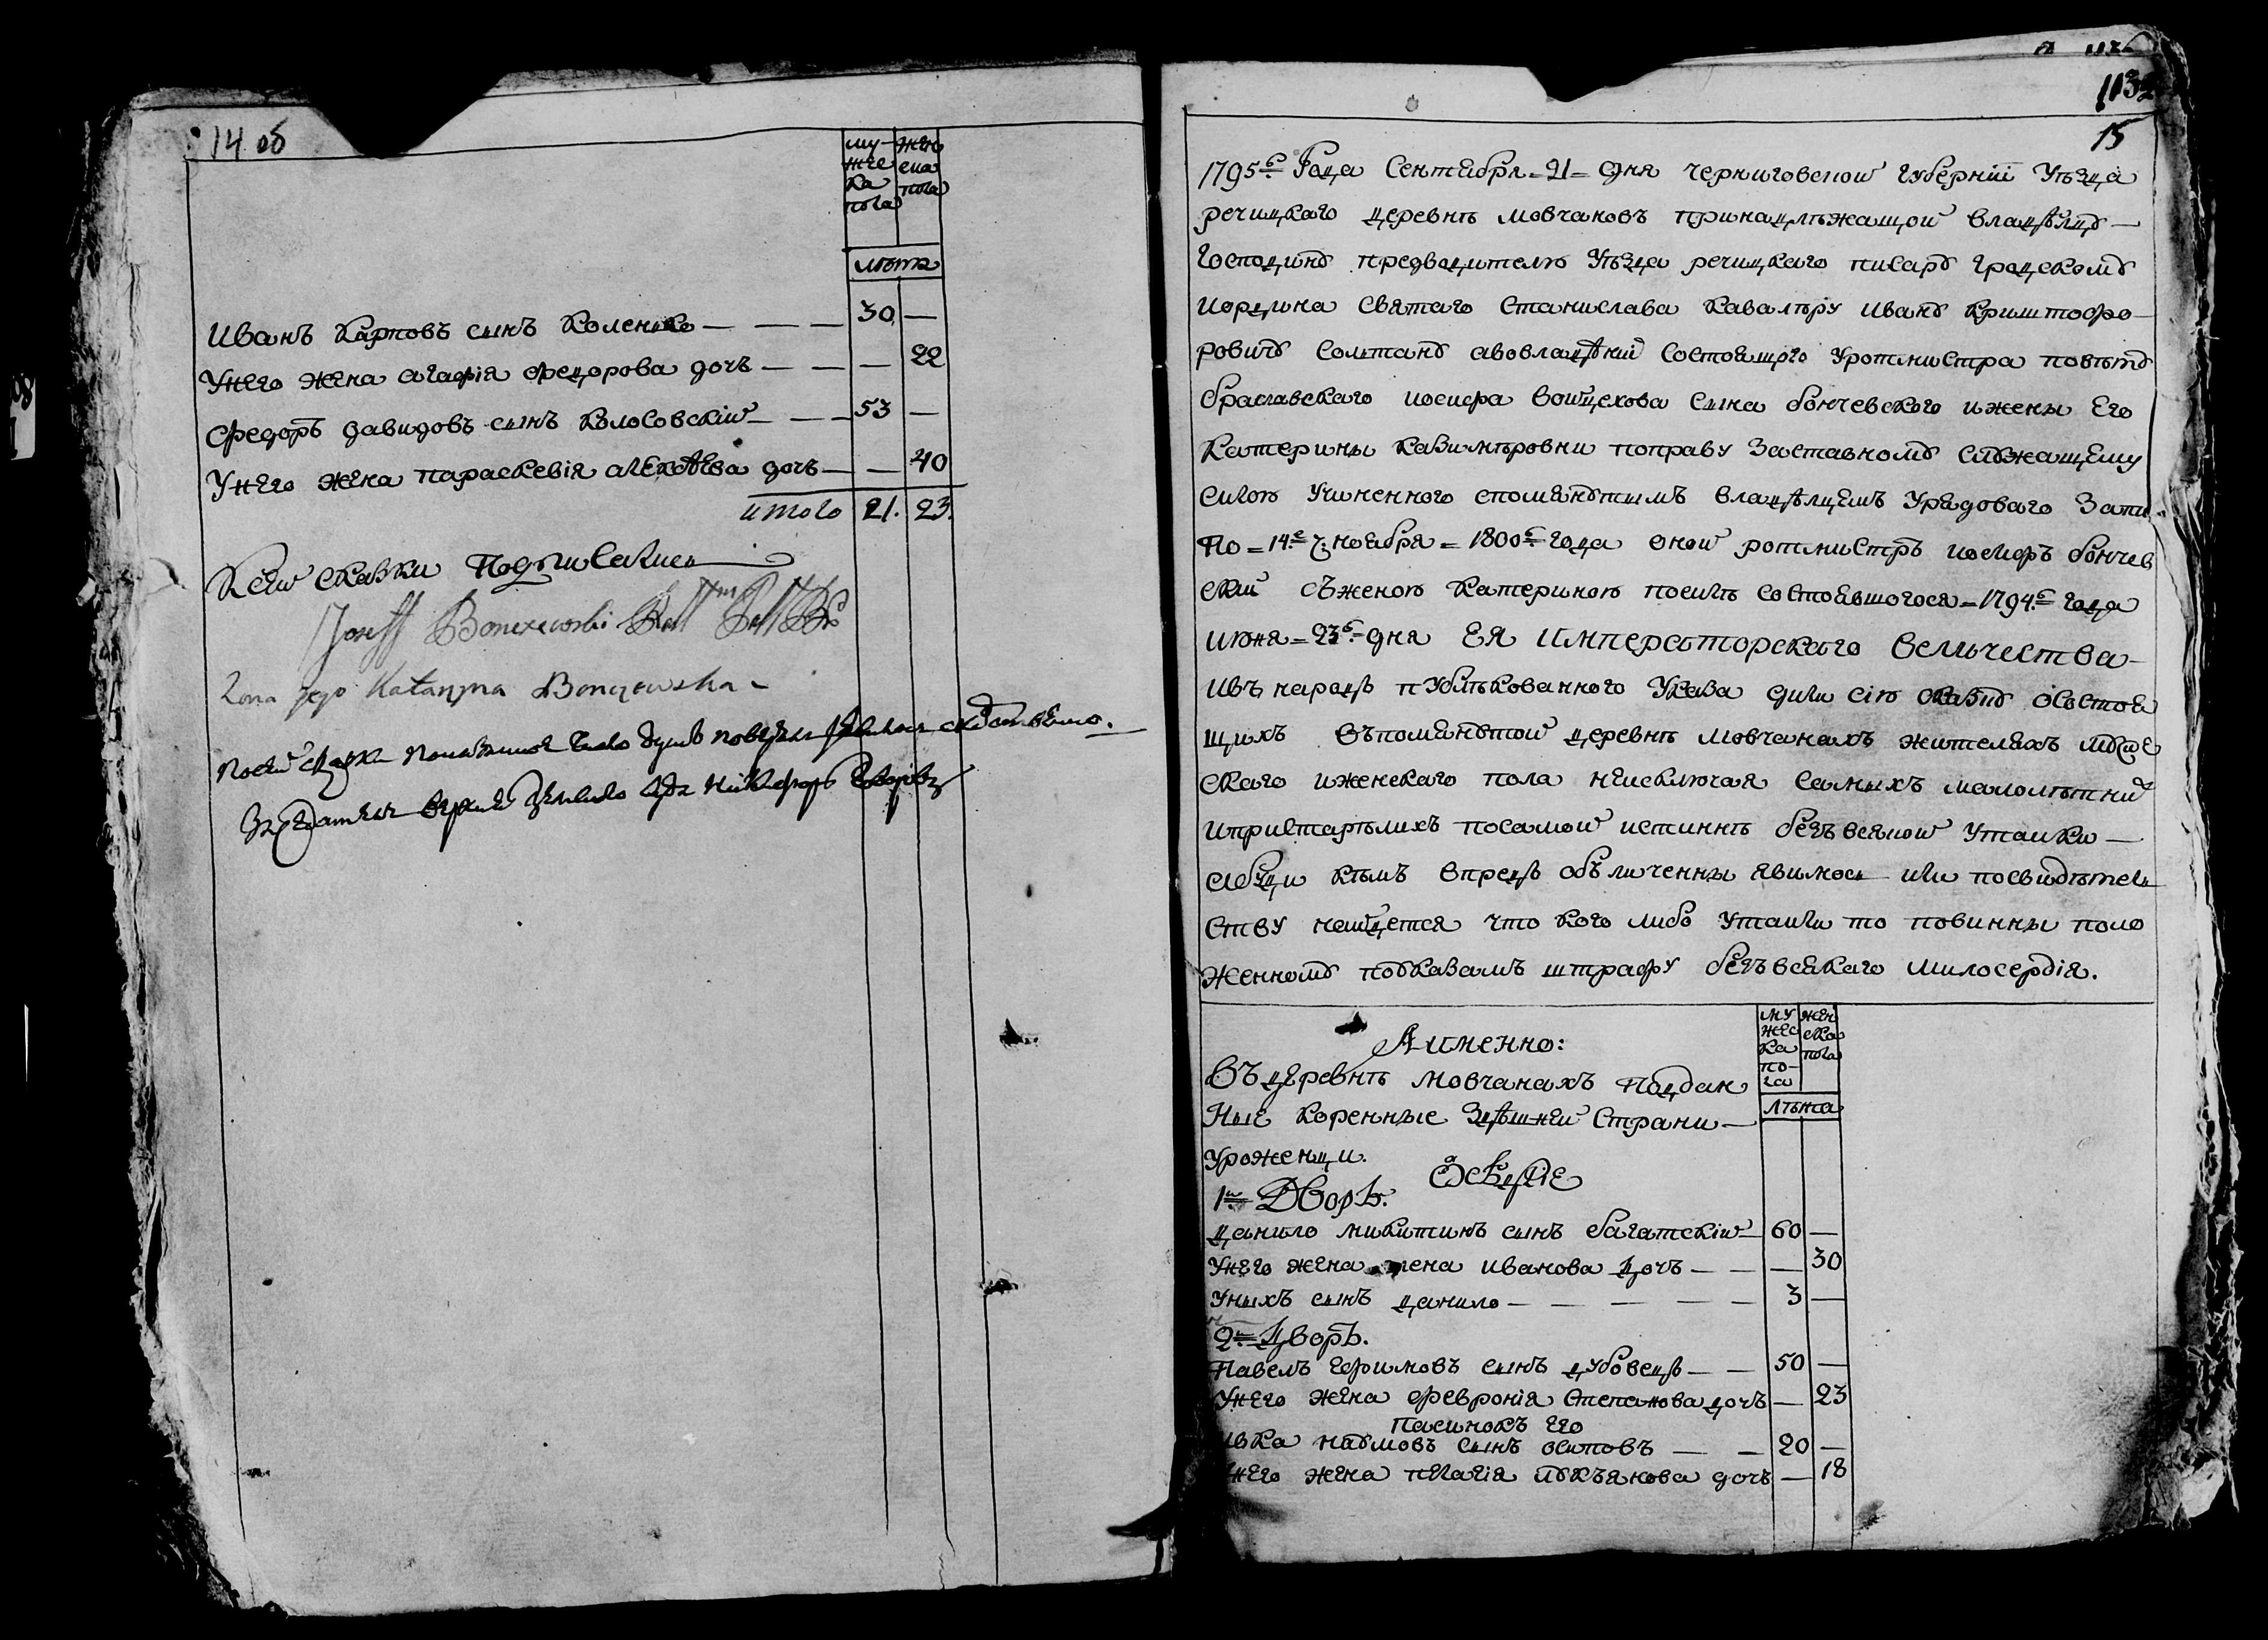 14 об
муж
жес
ка
пола
жен
ска
пола
лѣта
Иванъ Карповъ сынъ Коленко — — — 30 —
У него жена агафія федорова дочъ — — — 22
Федоръ давидовъ сынъ Колосовскій — — 53 —
У него жена параскевія алексѣева дочъ — — 40
итого 21. 23.
К сей сказки подписались
Joseff Bonczewski
Zona jego Katarzyna Bonczewska
По сей
1132
15
1795г. Года Сентября - 21 - дня черниговской губерніи Уѣзда
речицкаго деревнѣ мовчановъ принадлѣжащой владѣлцу —
Господину предводителю Уѣзда речицкаго писару градскому
иордина Святаго Станислава Кавалѣру ивану криштофо-
ровичу солтану а во владѣнии состоящого у ротмистра повѣту
браславскаго иосифа войцехова сына бончевского и жены его
Катерины Казимѣровни по праву заставному служащему
силою учиненного с помянутымъ владѣлцемъ урядоваго запи
По = 14.е ноября = 1800г. года оной ротмистръ иосифъ бончев
ский съ женою Катериною по силѣ состоявшогося = 1794.г года
июня = 23г. = дня ЕЯ императорскаго величества —
изъ народѣ публѣкованного указа дали сію сказку о состоя
щихъ въ помянутой деревнѣ мовчанахъ жителяхъ мужес
скаго и женскаго пола не исключая самыхъ малолѣтний
и пристарѣлихъ по самой истиннѣ безъ всякой утайки —
а буди кѣмъ впредѣ обличенны явимось или по свидѣтель
ству найдется что кого либо утаили то повинны поло
женному по указамъ штрафу безъ всякаго милосердія.
А именно:
му
жес
ка
по-
ла
жен
ска
пола
лѣта
Въ деревнѣ мовчанахъ поддан
ные коренные здѣшней страни —
уроженци.
1й Дворъ.
данило микитинъ сынъ багатскій — 60 —
У него жена иванова дочъ — — — 30
У ныхъ сынъ данило — — — — — 3 —
2й дворъ.
Павелъ ефимовъ сынъ дубовецъ — — 50 —
У него жена февронія степанова дочъ — 23
Пасинокъ его
наумовъ сынъ осиповъ — — 20 —
него жена пелагія лукъянова дочъ — 18